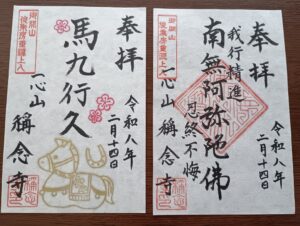 奉拝
馬九行久
令和八年
二月十四日
一心山 稱念寺
奉拝
我行精進
南無阿弥陀佛
忍終不悔
令和八年
二月十四日
一心山 稱念寺